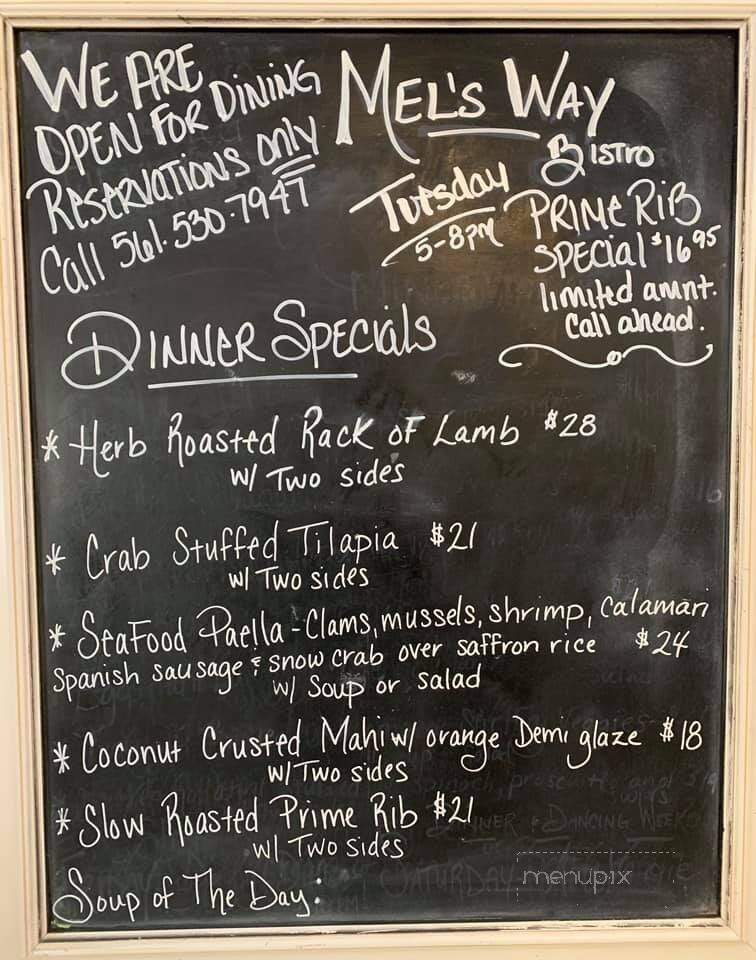 WE ARE
OPEN FOR DINING
RESERVATIONS only
Call 561.530.7947
MEL'S WAY
BISTRO
Tuesday
5-8pm
PRIME RIB
SPECIAL $16.95
limited amnt.
Call ahead.
DINNER SPECIALS
* Herb Roasted Rack of Lamb $28
w/ Two sides
* Crab Stuffed Tilapia $21
w/ Two sides
* SeaFood Paella - Clams, mussels, shrimp, calamari
Spanish sausage & snow crab over saffron rice $24
w/ Soup or salad
* Coconut Crusted Mahi w/ orange Demi glaze $18
w/ Two sides
* Slow Roasted Prime Rib $21
w/ Two sides
DINNER & DANCING
SATURDAY
Soup of The Day:
menupix